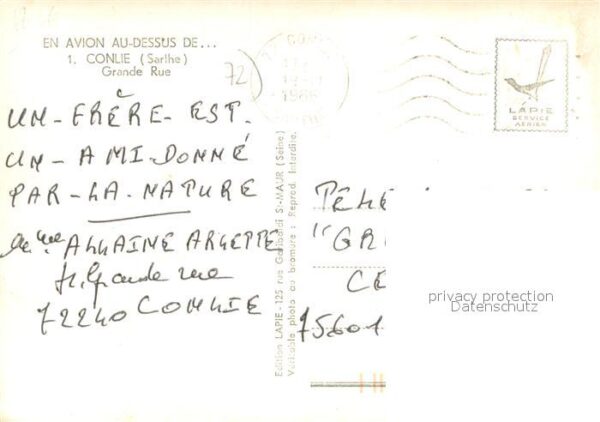 EN AVION AU-DESSUS DE...
1. CONLIE (Sarthe)
Grande Rue
72
1966
LAPIE
SERVICE
AÉRIEN
UN-FRÈRE-EST.
UN-AMI-DONNÉ
PAR-LA-NATURE
Mme ALLAINE ARLETTE
Grande rue
72240 CONLIE
Edition LAPIE - 125 rue Garibaldi St-MAUR (Seine)
Véritable photo au bromure : Reprod. Interdite.
TÉLÉ
"GR
CE
75601
privacy protection
Datenschutz